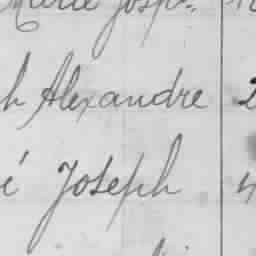 Marie Josp.
h Alexandre 2
é Joseph 4